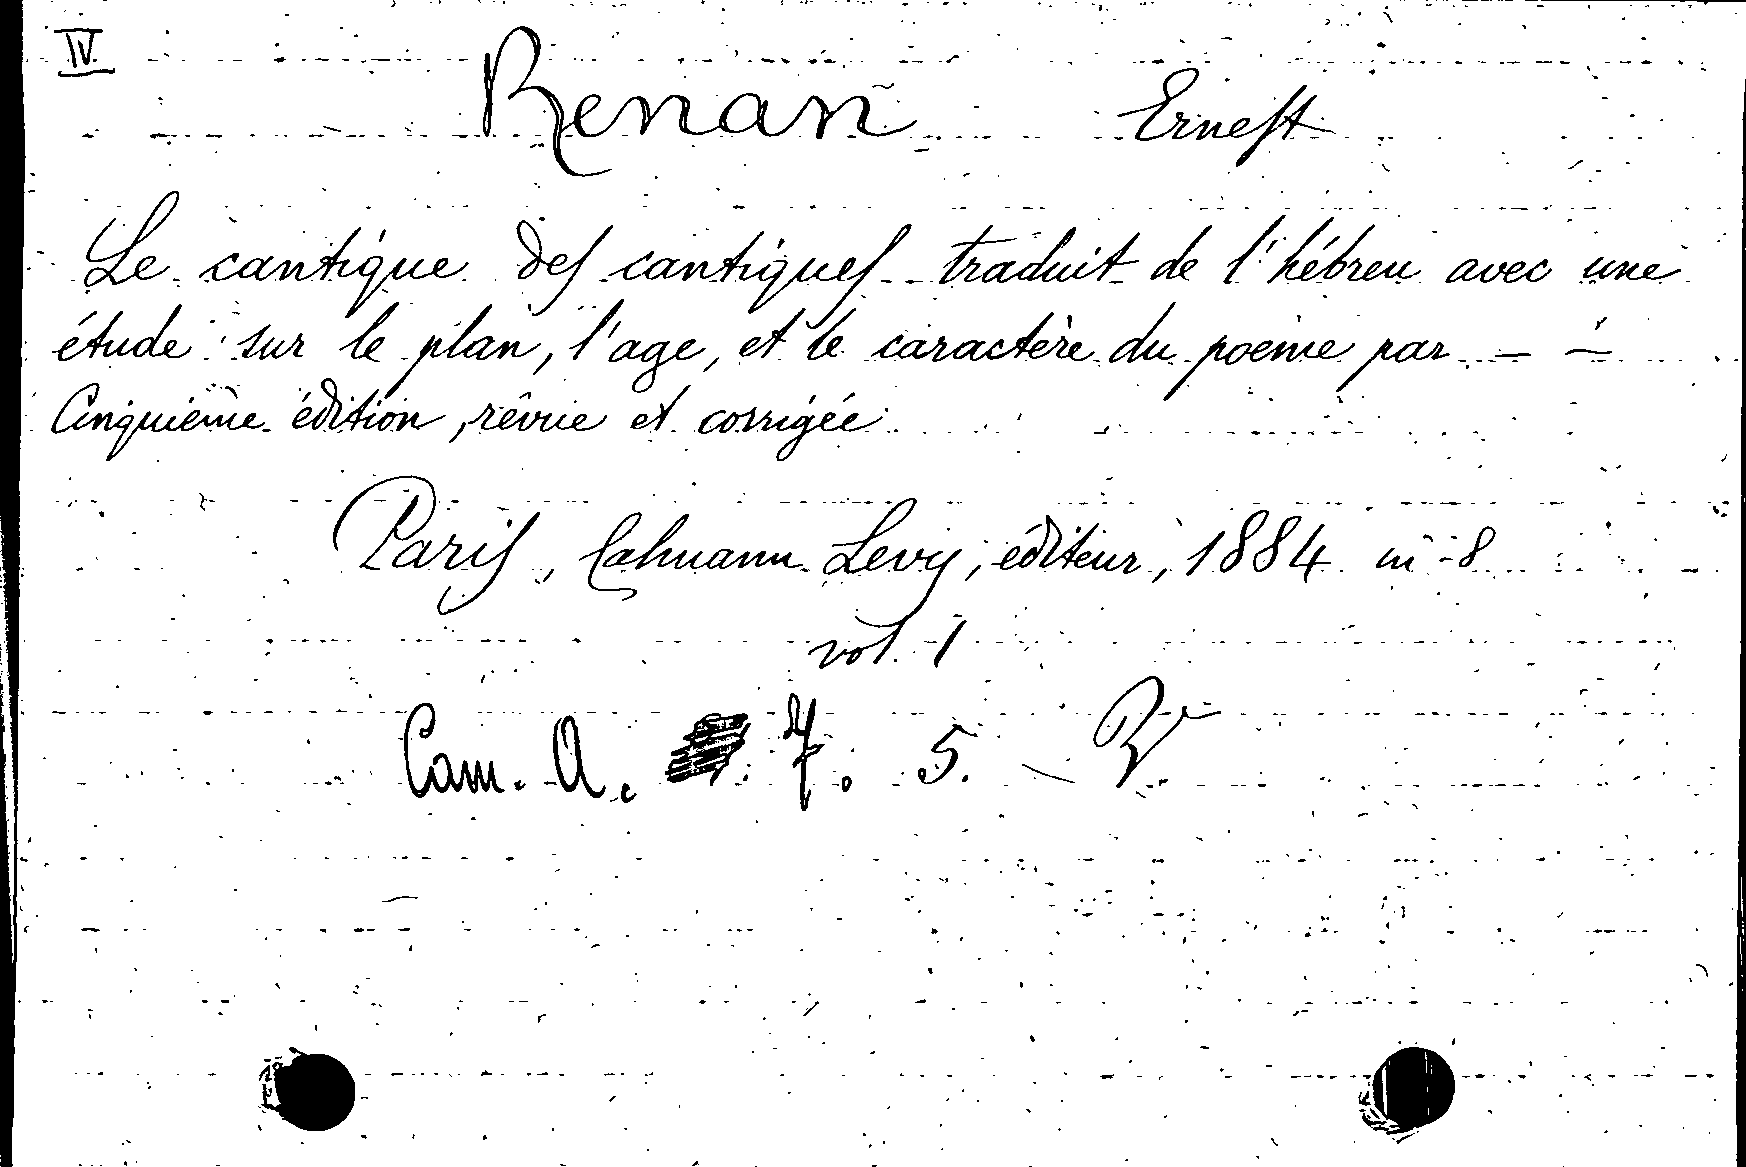 IV.
Renan Ernest
Le cantique des cantiques traduit de l'hébreu avec une
étude sur le plan, l'age, et le caractère du poème par — —
Cinquième édition, révue et corrigée
Paris, Calmann Levy, éditeur, 1884 in-8
vol. 1
Cam. A. 7. 5.